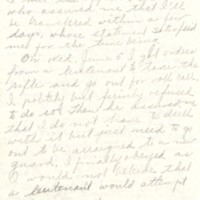 who assured me that I'll
be transferred within a few
days, whose statement satisfied
me for the time being.
On Wed. June 5, I got orders
from a lieutenant to take the
rifle and go out for roll call.
I politely but firmly refused
to do so. Than he assured me
that I do not have to drill
with it but just need to go
out to be arraigned to a new
guard. I finally obeyed as
I would not believe that
a lieutenant would attempt